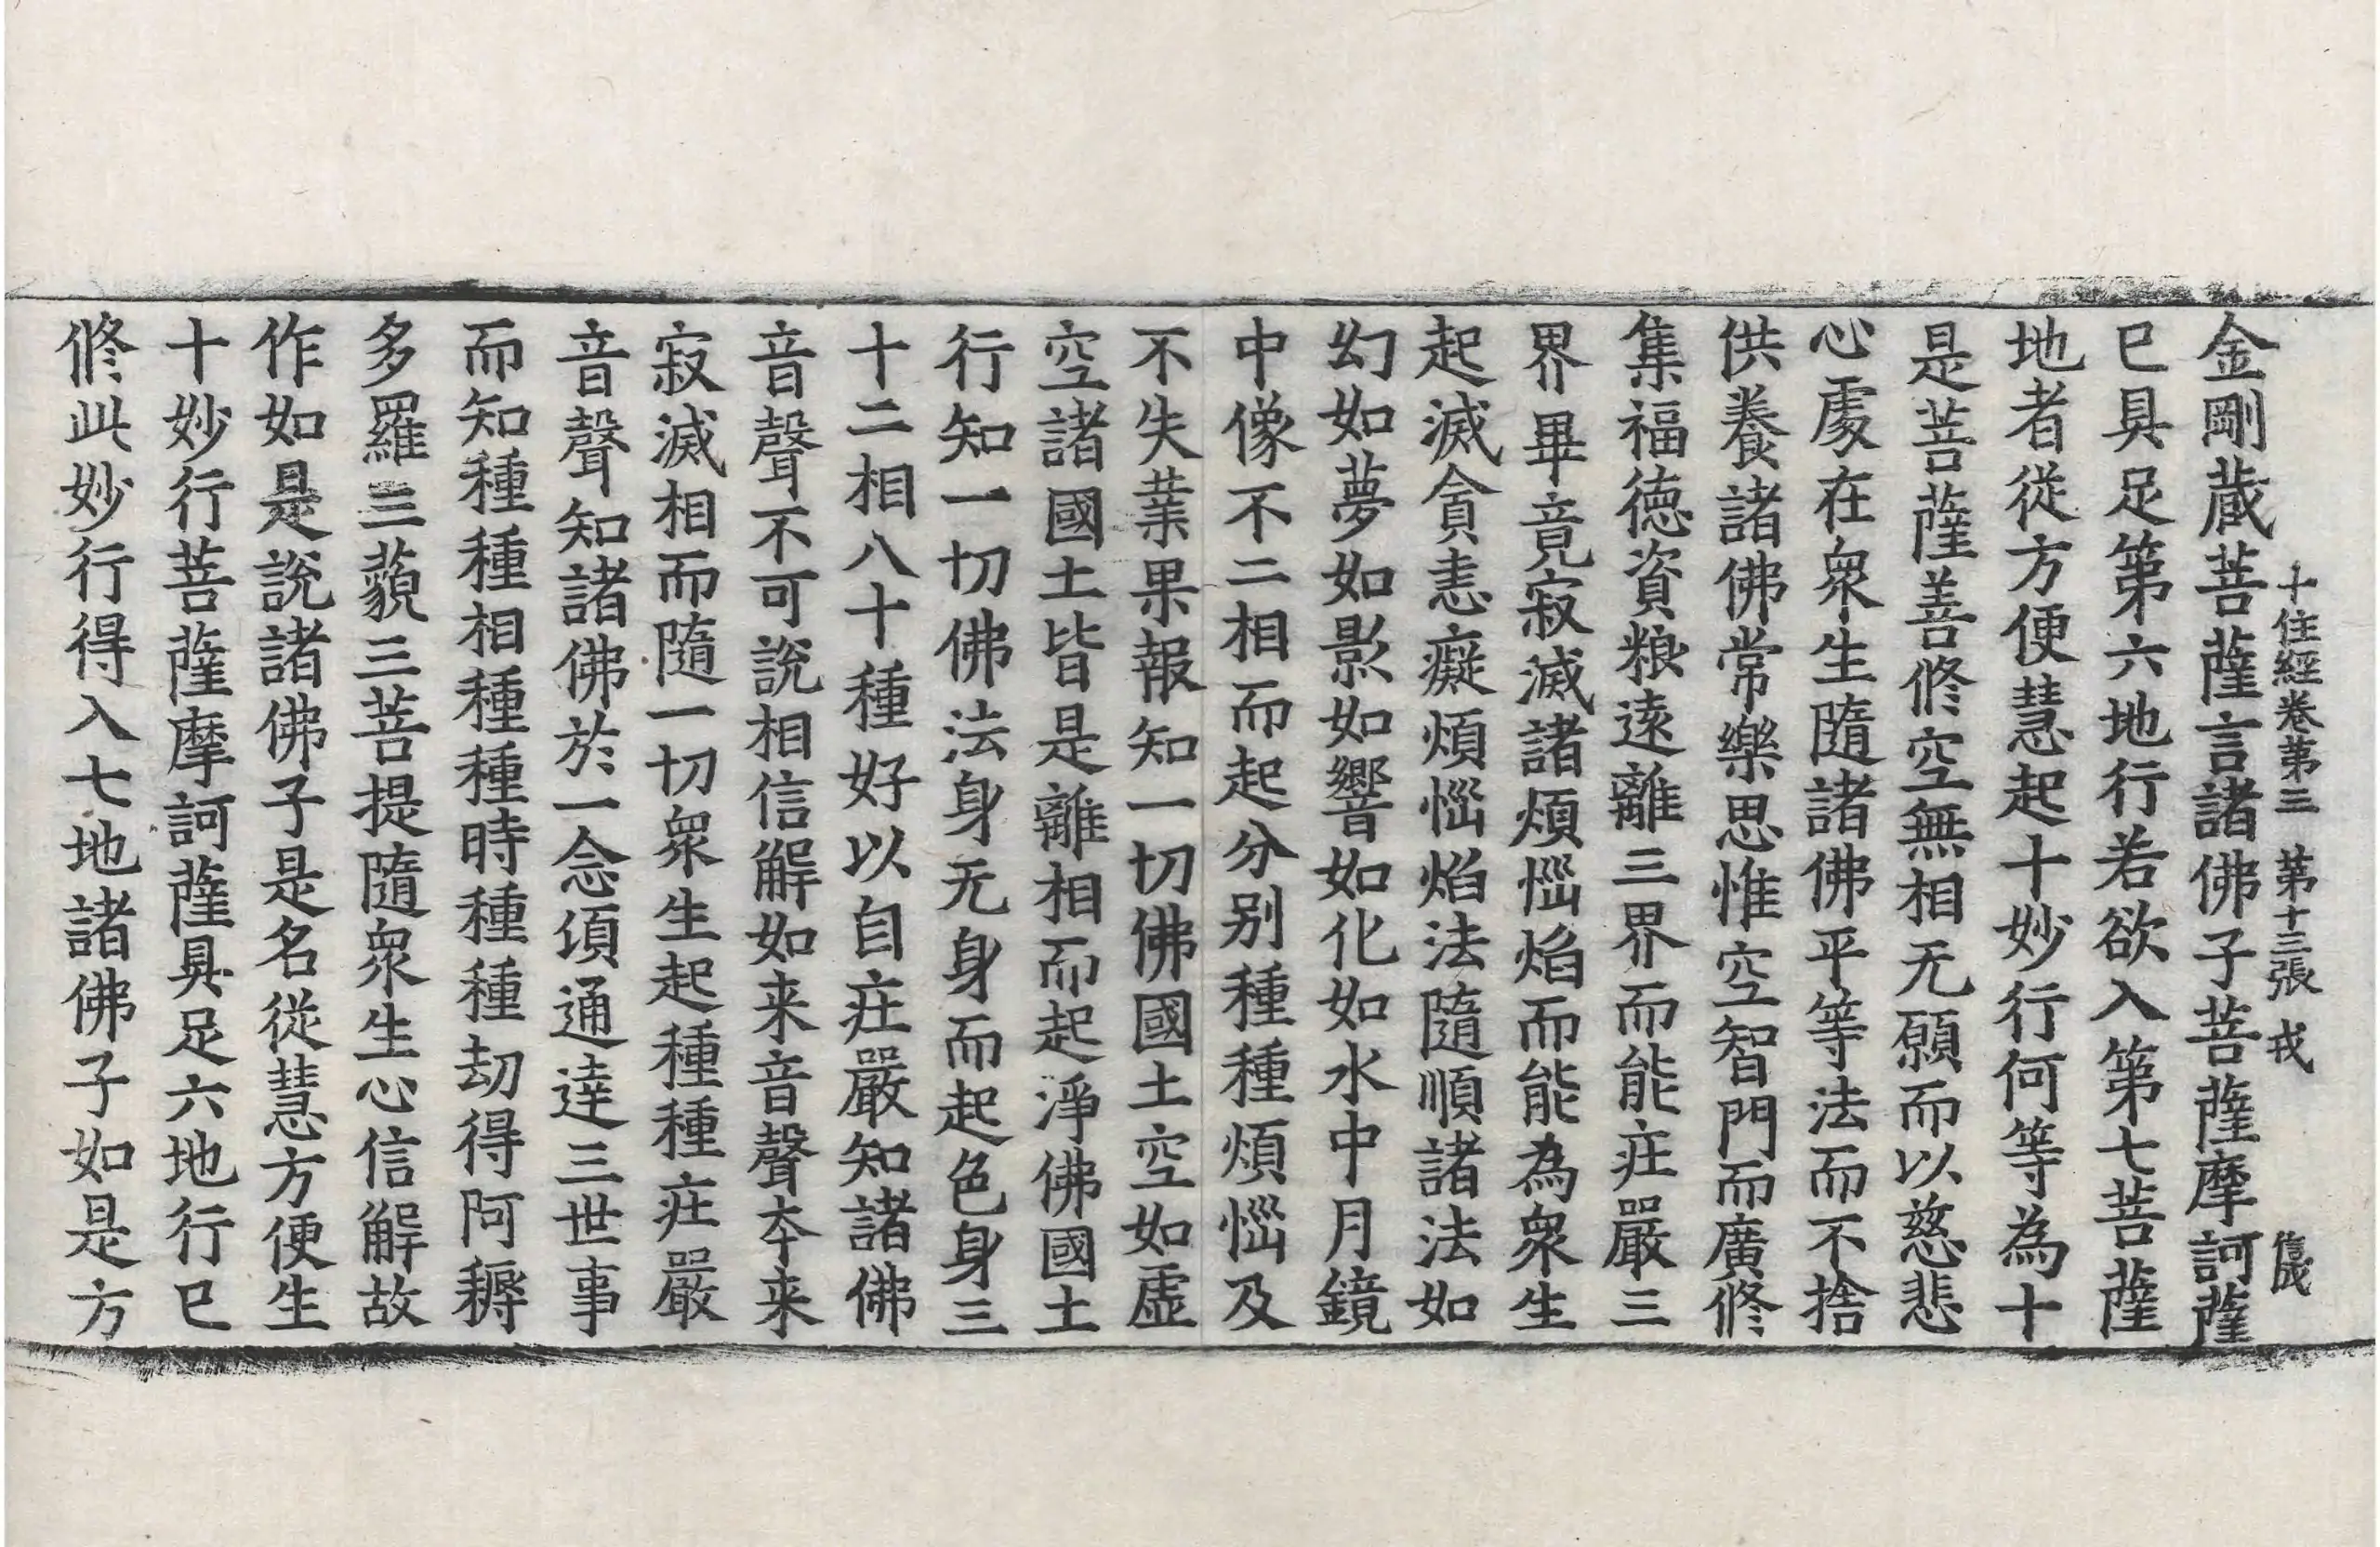 十住經卷第三　第十三張　戎
信成
金剛蔵菩薩言諸佛子菩薩摩訶薩
已具足第六地行若欲入第七菩薩
地者従方便慧起十妙行何等為十
是菩薩善修空無相无願而以慈悲
心處在衆生隨諸佛平等法而不捨
供養諸佛常樂思惟空智門而廣修
集福徳資粮逺離三界而能庄嚴三
界畢竟寂滅諸煩惱焰而能為衆生
起滅貪恚癡煩惱焰法隨順諸法如
幻如夢如影如響如化如水中月鏡
中像不二相而起分别種種煩惱及
不失業果報知一切佛國土空如虚
空諸國土皆是離相而起淨佛國土
行知一切佛法身无身而起色身三
十二相八十種好以自庄嚴知諸佛
音聲不可説相信解如来音聲夲来
寂滅相而隨一切衆生起種種庄嚴
音聲知諸佛於一念頃通達三世事
而知種種相種種時種種劫得阿耨
多羅三藐三菩提隨衆生心信解故
作如是說諸佛子是名従慧方便生
十妙行菩薩摩訶薩具足六地行已
修此妙行得入七地諸佛子如是方